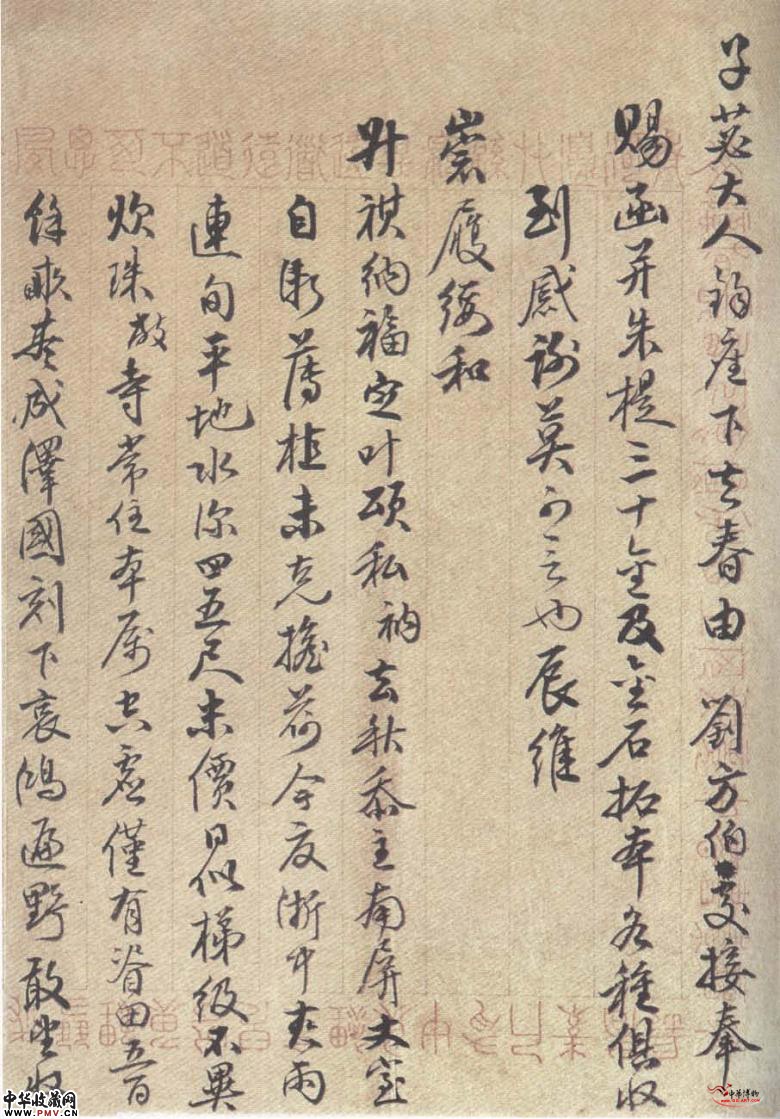 子苾大人鈞座下去春由 劉方伯處接奉
賜函并朱提三十金及金石拓本各種俱收
到感謝莫可言也辰維
崇履綏和
升祺納福定叶頌私衲去秋忝主南屏丈室
自漸薄植未克擔荷今夏浙中雨
連旬平地水深四五尺米價日似梯級不異
炊珠敝寺常住本属空虛僅有田五百
餘畝盡成澤國刻下哀鴻遍野敢望收
中华收藏网
www.PMV.cn